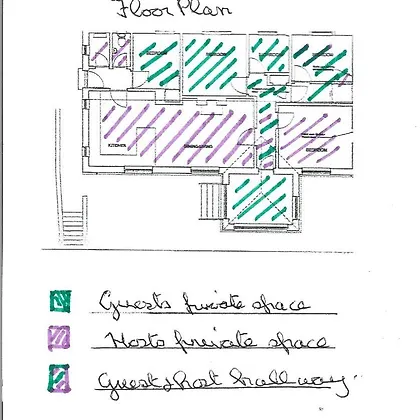 Floor Plan
BEDROOM
BEDROOM
KITCHEN
DINING/LIVING
BEDROOM
Guests private space
Hosts private space
Guest & host hallway